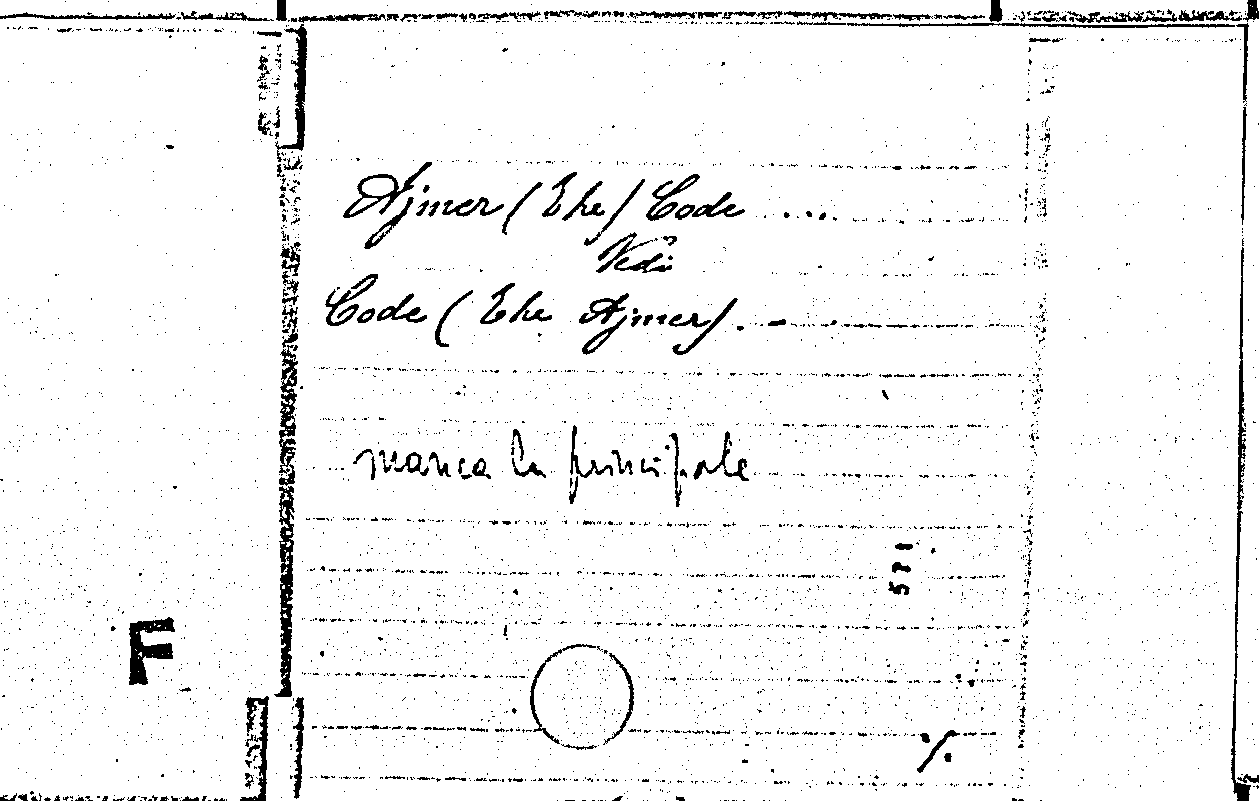 Ajmer (The) Code ....
Vedi
Code (The Ajmer). - .
manca la principale
571
F
./.